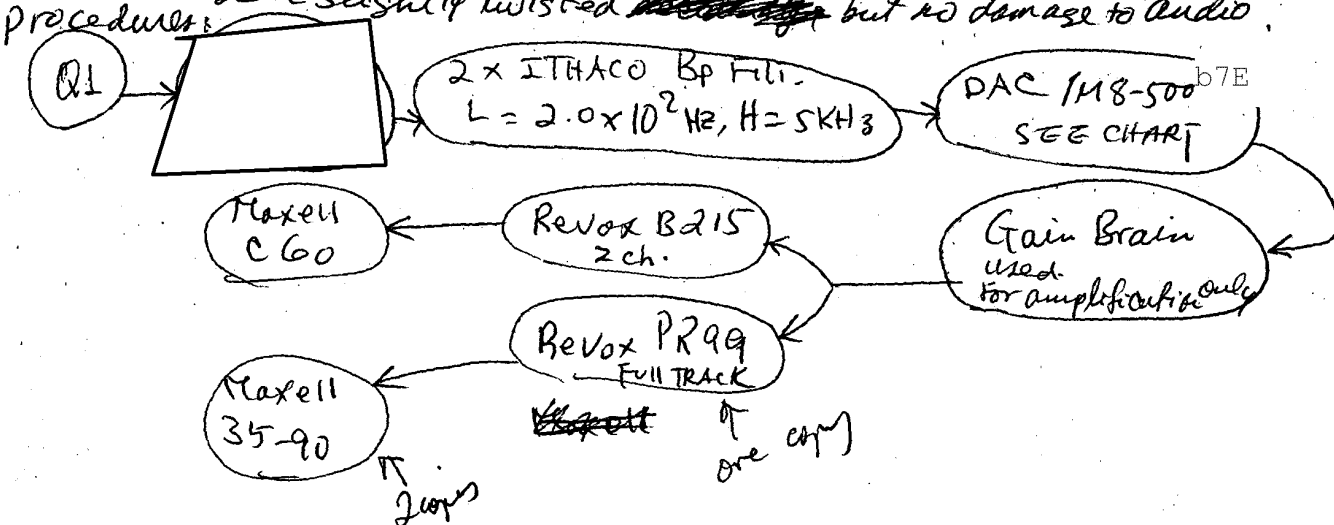 slightly twisted but no damage to audio.
Procedures:
Q1
2 x ITHACO Bp Filt.
L = 2.0 x 10² Hz, H = 5KHz
DAC /M8-500
b7E
SEE CHART
Gain Brain
used
for amplification only
Revox B215
2 ch.
Maxell
C 60
Revox PR99
Full TRACK
one copy
Maxell
35-90
2 copies